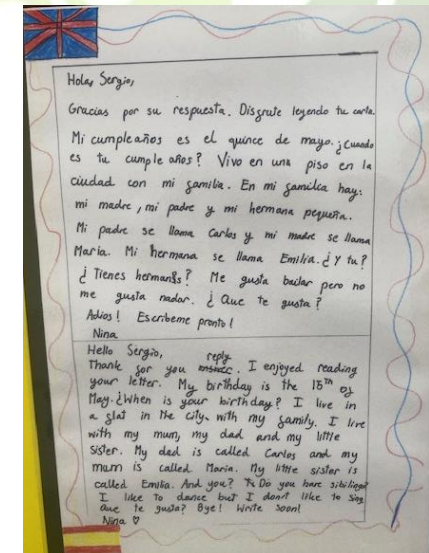 Hola, Sergio,
Gracias por su respuesta. Disfrute leyendo tu carta.
Mi cumpleaños es el quince de mayo. ¿Cuando
es tu cumple años? Vivo en una piso en la
ciudad con mi familia. En mi familia hay:
mi madre, mi padre y mi hermana pequeña.
Mi padre se llama Carlos y mi madre se llama
Maria. Mi hermana se llama Emilia. ¿Y tu?
¿Tienes hermanos? Me gusta bailar pero no
me gusta nadar. ¿Que te gusta?
Adios! Escribeme pronto!
Nina
Hello Sergio,
reply
Thank for you. I enjoyed reading
your letter. My birthday is the 15th of
May. ¿When is your birthday? I live in
a flat in the city, with my family. I live
with my mum, my dad and my little
sister. My dad is called Carlos and my
mum is called Maria. My little sister is
called Emilia. And you? Do you have siblings?
I like to dance but I don't like to sing.
Que te gusta? Bye! Write soon!
Nina ♡